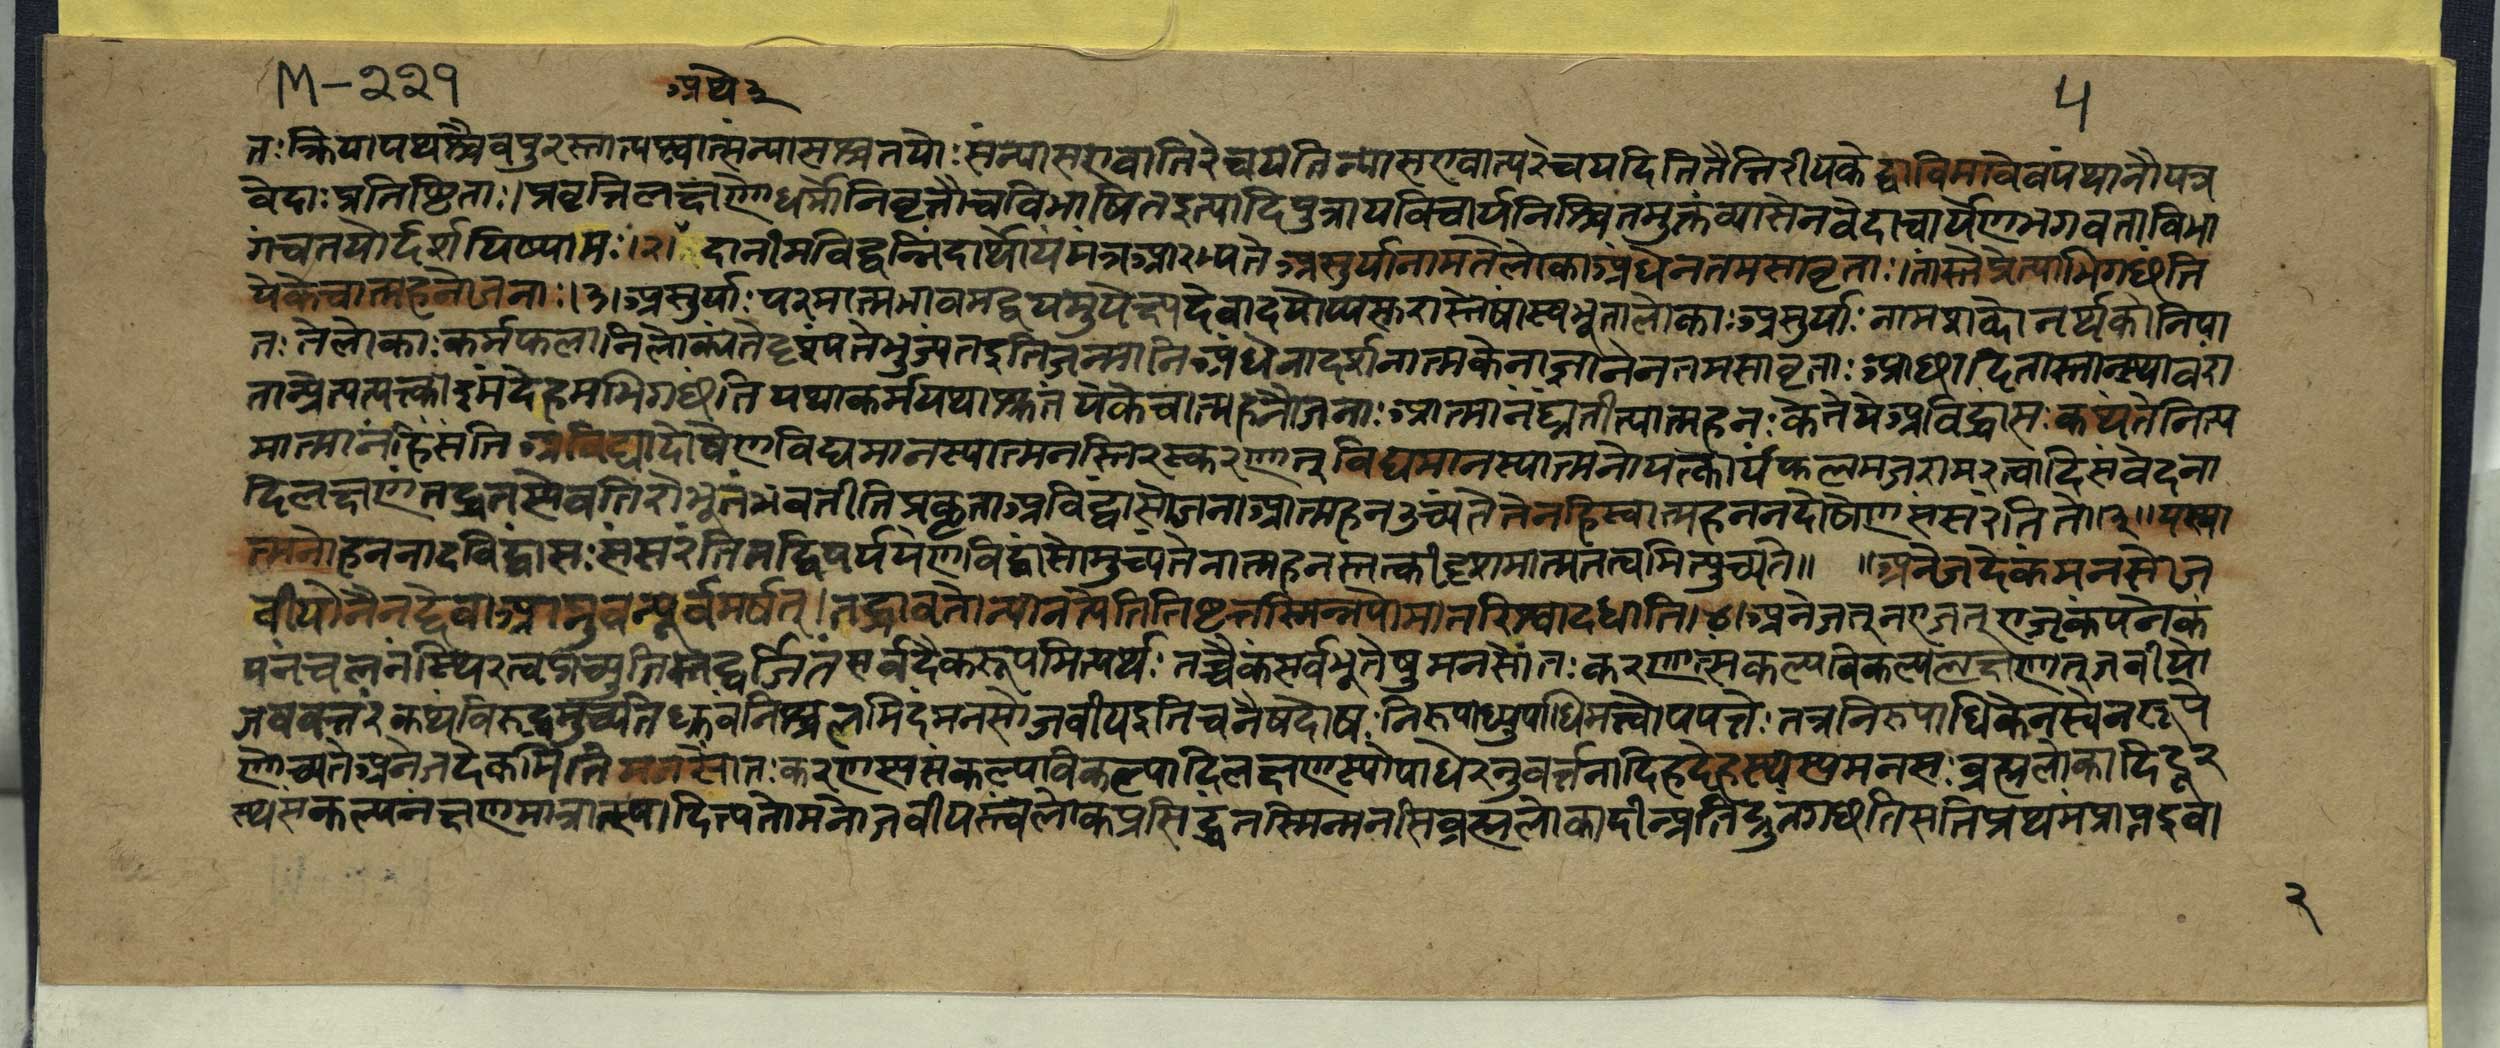 M-२२१ अथे३ 4
तःक्रियापथश्चैवपुरस्तात्पश्चात्संन्यासश्चतयोःसंन्यासएवातिरेचयतिन्यासएवात्परेचयदितितैत्तिरीयकेद्वाविमावेवपंथानौयत्र
वेदाःप्रतिष्टिताः।प्रवृत्तिलक्षणोधर्मोनिवृत्तौचविभाषितइत्यादिपुत्रायविचार्यनिश्चितमुक्तंव्यासेनवेदाचार्येणभगवताविभा
गंचतयोर्दर्शयिष्यामः।२।इदानीमविद्वन्निंदार्थोयंमंत्रआरभ्यतेअसुर्यानामतेलोकाअंधेनतमसावृताः।तांस्तेप्रेत्याभिगछंति
येकेचात्महनोजनाः।३।असुर्याःपरमात्मभावमद्वयमपेक्ष्यदेवादयोप्यसुरास्तेषांस्वभूतालोकाःअसुर्याःनामशब्दोनर्थकोनिपा
तःतेलोकाःकर्मफलानिलोक्यंतेदृश्यंतेभुज्यंतइतिजन्मानिअंधेनादर्शनात्मकेनाज्ञानेनतमसावृताःआछादितास्तान्स्थावरां
तान्प्रेत्यत्यक्त्वेमंदेहमभिगछंतियथाकर्मयथाश्रुतंयेकेचात्महनोजनाःआत्मानंघ्नतीत्यात्महनःकेतेयेअविद्वांसःकथंतेनित्य
मात्मानंहिंसंतिअविद्यादोषेणविद्यमानस्यात्मनस्तिरस्करणात्विद्यमानस्यात्मनोयत्कार्यंफलमजरामरत्वादिसंवेदना
दिलक्षणंतद्धतस्येवतिरोभूतंभवतीतिप्रकृताअविद्वांसोजनाआत्महनउच्यंतेतेनहिस्वात्महननदोषेणसंसरंतिते॥३॥यस्या
त्मनोहननादविद्वांसःसंसरंतितद्विपर्ययेणविद्वांसोमुच्यंतेनात्महनस्तत्कीदृशमात्मतत्वमित्युच्यते॥ ॥अनेजदेकंमनसोज
वीयोनैनद्देवाआप्नुवन्पूर्वमर्षत्।तद्धावतोन्यानत्येतितिष्टत्तस्मिन्नपोमातरिश्वादधाति।४।अनेजत्नएजत्एजृकंपनेकं
पनंचलनंस्थिरत्वप्रच्युतिस्तद्वर्जितंसर्वदैकरूपमित्यर्थःतच्चैकंसर्वभूतेषुमनसोंतःकरणात्संकल्पविकल्पलक्षणात्जवीयो
जववत्तरंकथंविरुद्धमुच्यतेध्रुवंनिश्चलमिदंमनसोजवीयइतिचनैषदोषःनिरुपाध्युपाधिमत्वोपपत्तेःतत्रनिरुपाधिकेनस्वेनरूपे
णोच्यतेअनेजदेकमितिमनसोंतःकरणस्यसंकल्पविकल्पादिलक्षणस्योपाधेरनुवर्त्तनादिहदेहस्थस्यमनसःब्रह्मलोकादिदूर
स्थसंकल्पनंक्षणमात्रात्स्यादित्यतोमनोजवीयस्त्वंलोकप्रसिद्धंतस्मिन्मनसिब्रह्मलोकादीन्प्रतिद्रुतंगछतिसतिप्रथमंप्राप्तइवा
२